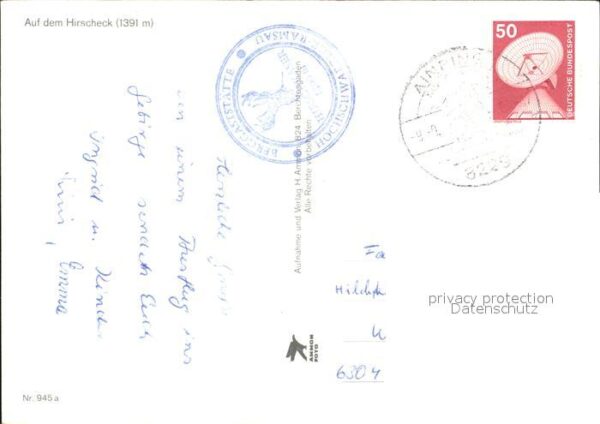 Auf dem Hirscheck (1391 m)
BERGGASTSTÄTTE
RAMSAU
50
DEUTSCHE BUNDESPOST
AINRING
Herzliche Grüße
von einem Ausflug ins
Gebirge senden Euch
Ingrid u. Kinder
Aufnahme und Verlag H. Ammon, 824 Berchtesgaden
Alle Rechte vorbehalten
Fa
K
6304
privacy protection
Datenschutz
AMMON
FOTO
Nr. 945 a